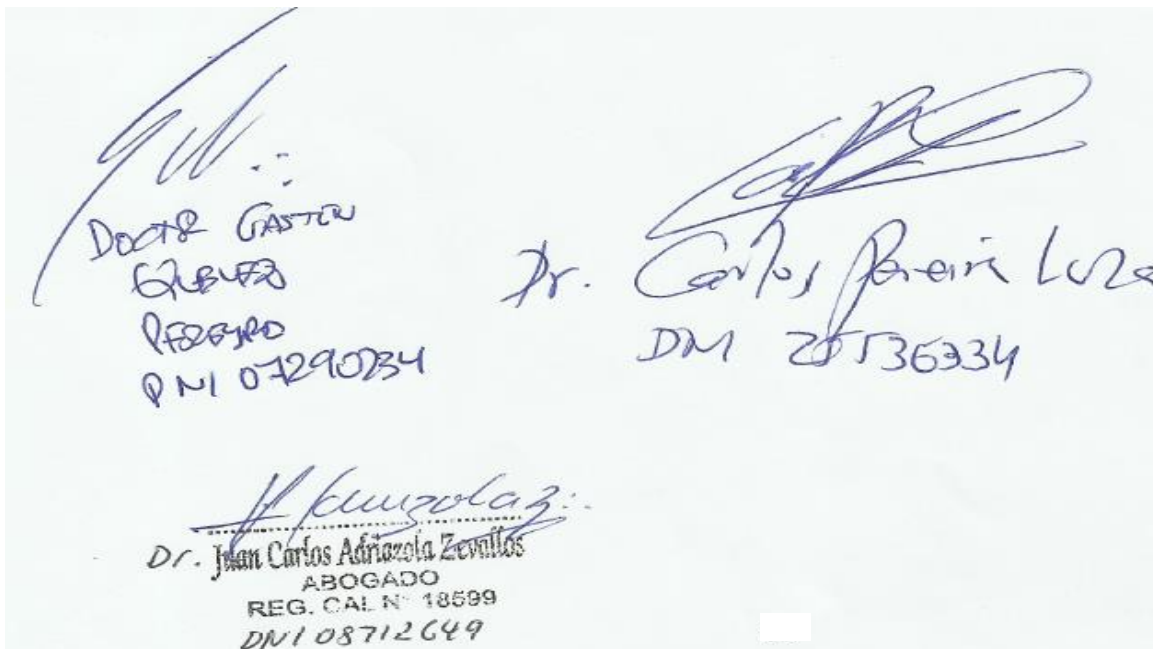 DOCTOR GASTON
PEREYRO
DNI 07290234
Dr. Carlos Pereira Luza
DNI
Dr. Juan Carlos Adriazola Zevallos
ABOGADO
REG. CAL Nº 18599
DNI 08712649